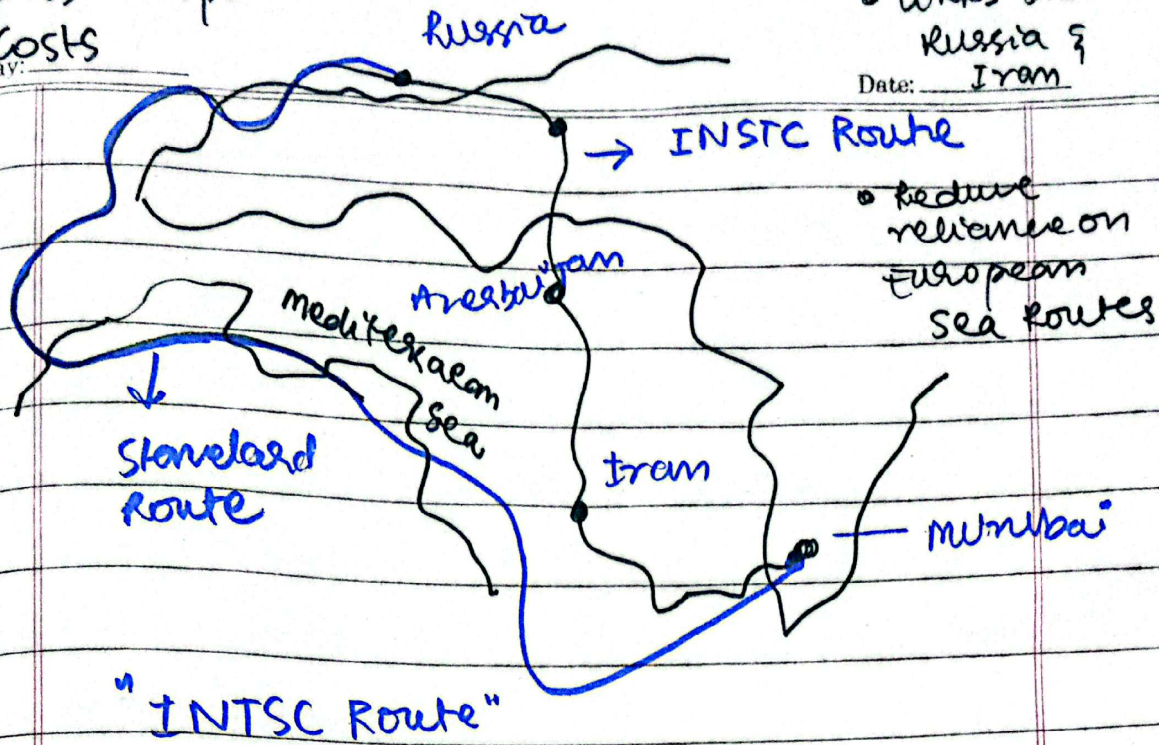 Costs
ay:
Russia
Russia &
Date: Iran
→ INSTC Route
• Reduce
reliance on
European
Sea Routes
Azerbaijan
Mediterranean
Sea
Standard
Route
Iran
Mumbai
"INTSC Route"